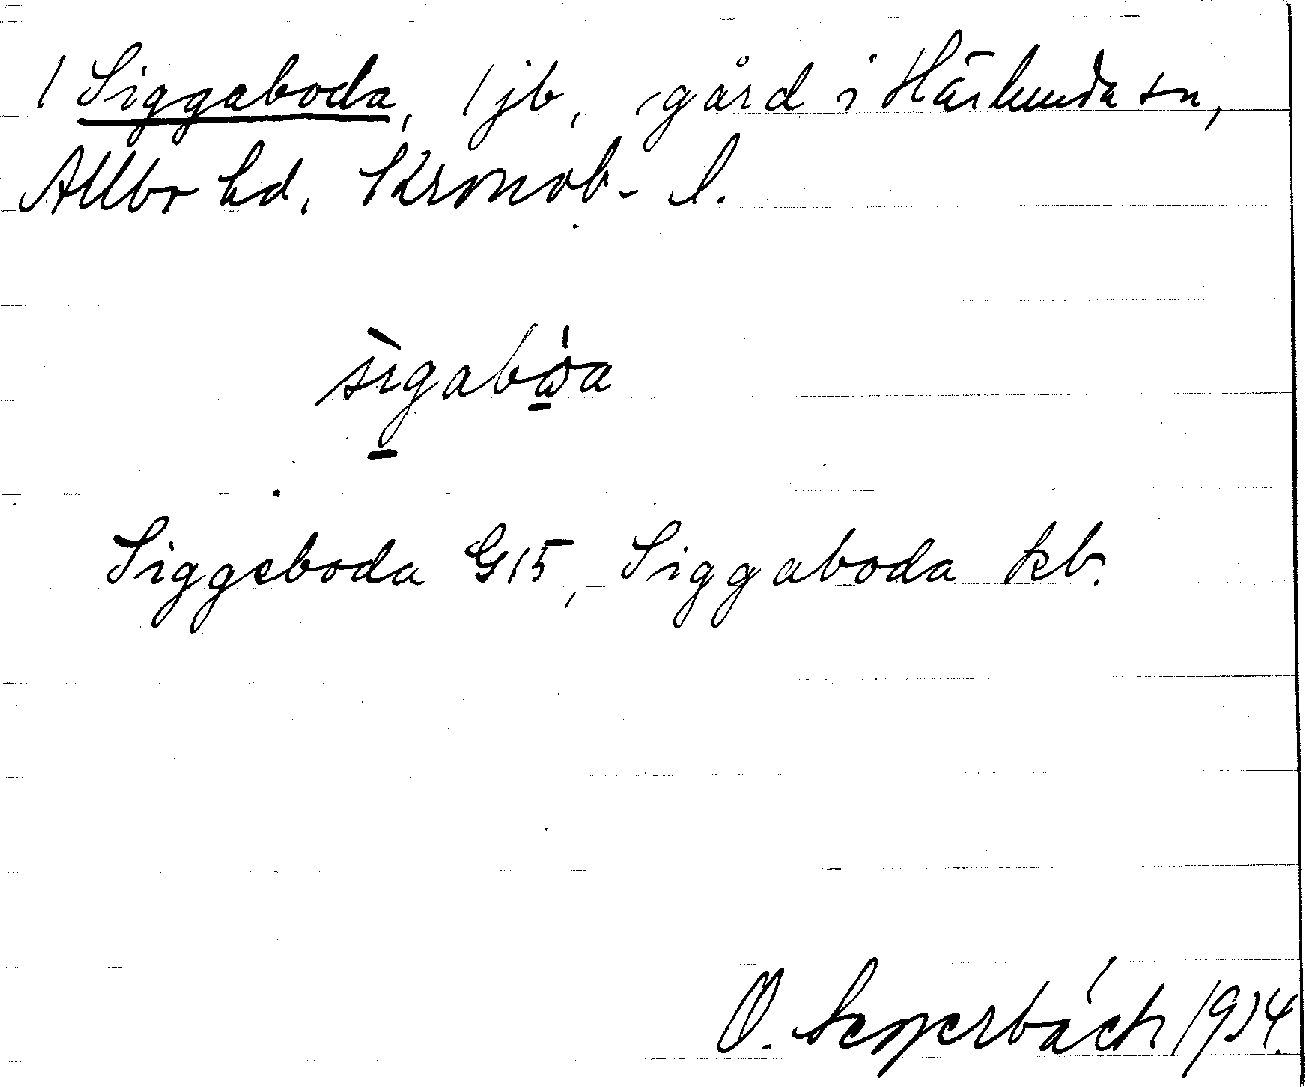 / Siggaboda, / jb, gård i Härlunda sn,
Allbo hd, Kronob. l.
sìgabo̱a
Siggeboda G15, Siggaboda kb.
O. 1934.